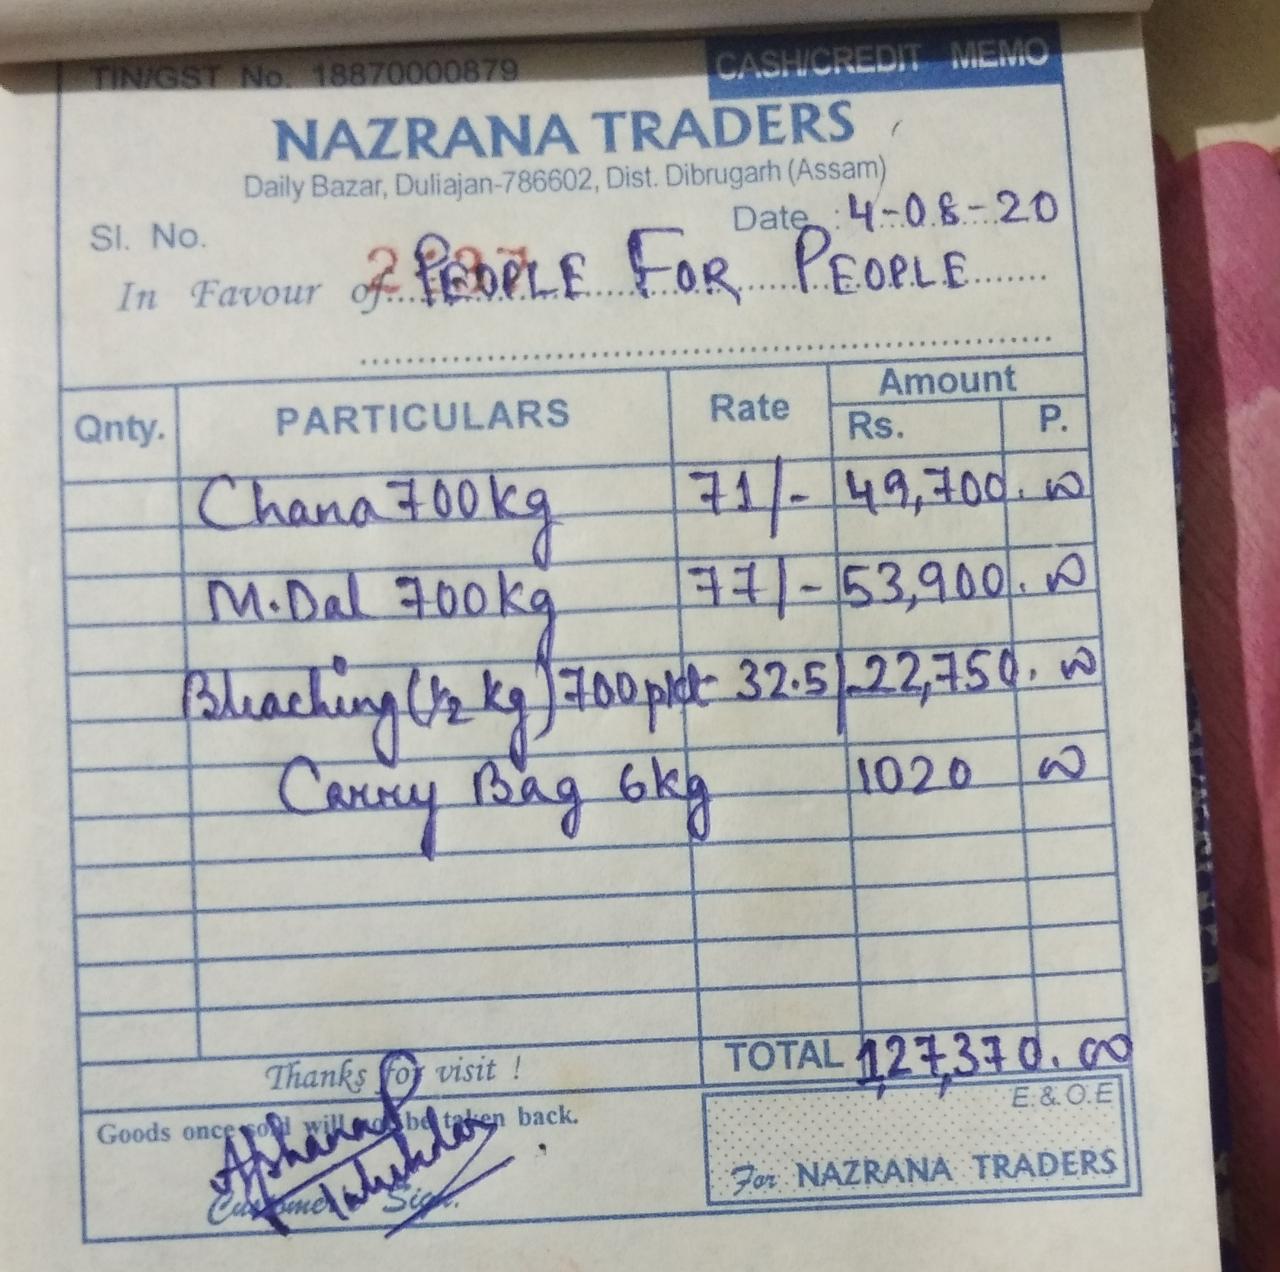 TIN/GST No. 18870000879
CASH/CREDIT MEMO
NAZRANA TRADERS
Daily Bazar, Duliajan-786602, Dist. Dibrugarh (Assam)
Sl. No.
Date : 4-08-20
In Favour of PEOPLE FOR PEOPLE
Qnty. PARTICULARS Rate Amount
Rs. P.
Chana 700 kg 71/- 49,700.00
M.Dal 700 kg 77/- 53,900.00
Bleaching (1/2 kg) 700 pkt 32.5/ 22,750.00
Carry Bag 6kg 1020 00
TOTAL 1,27,370.00
Thanks for visit !
Goods once sold will not be taken back.
E. & O.E
Customer Sign.
For NAZRANA TRADERS